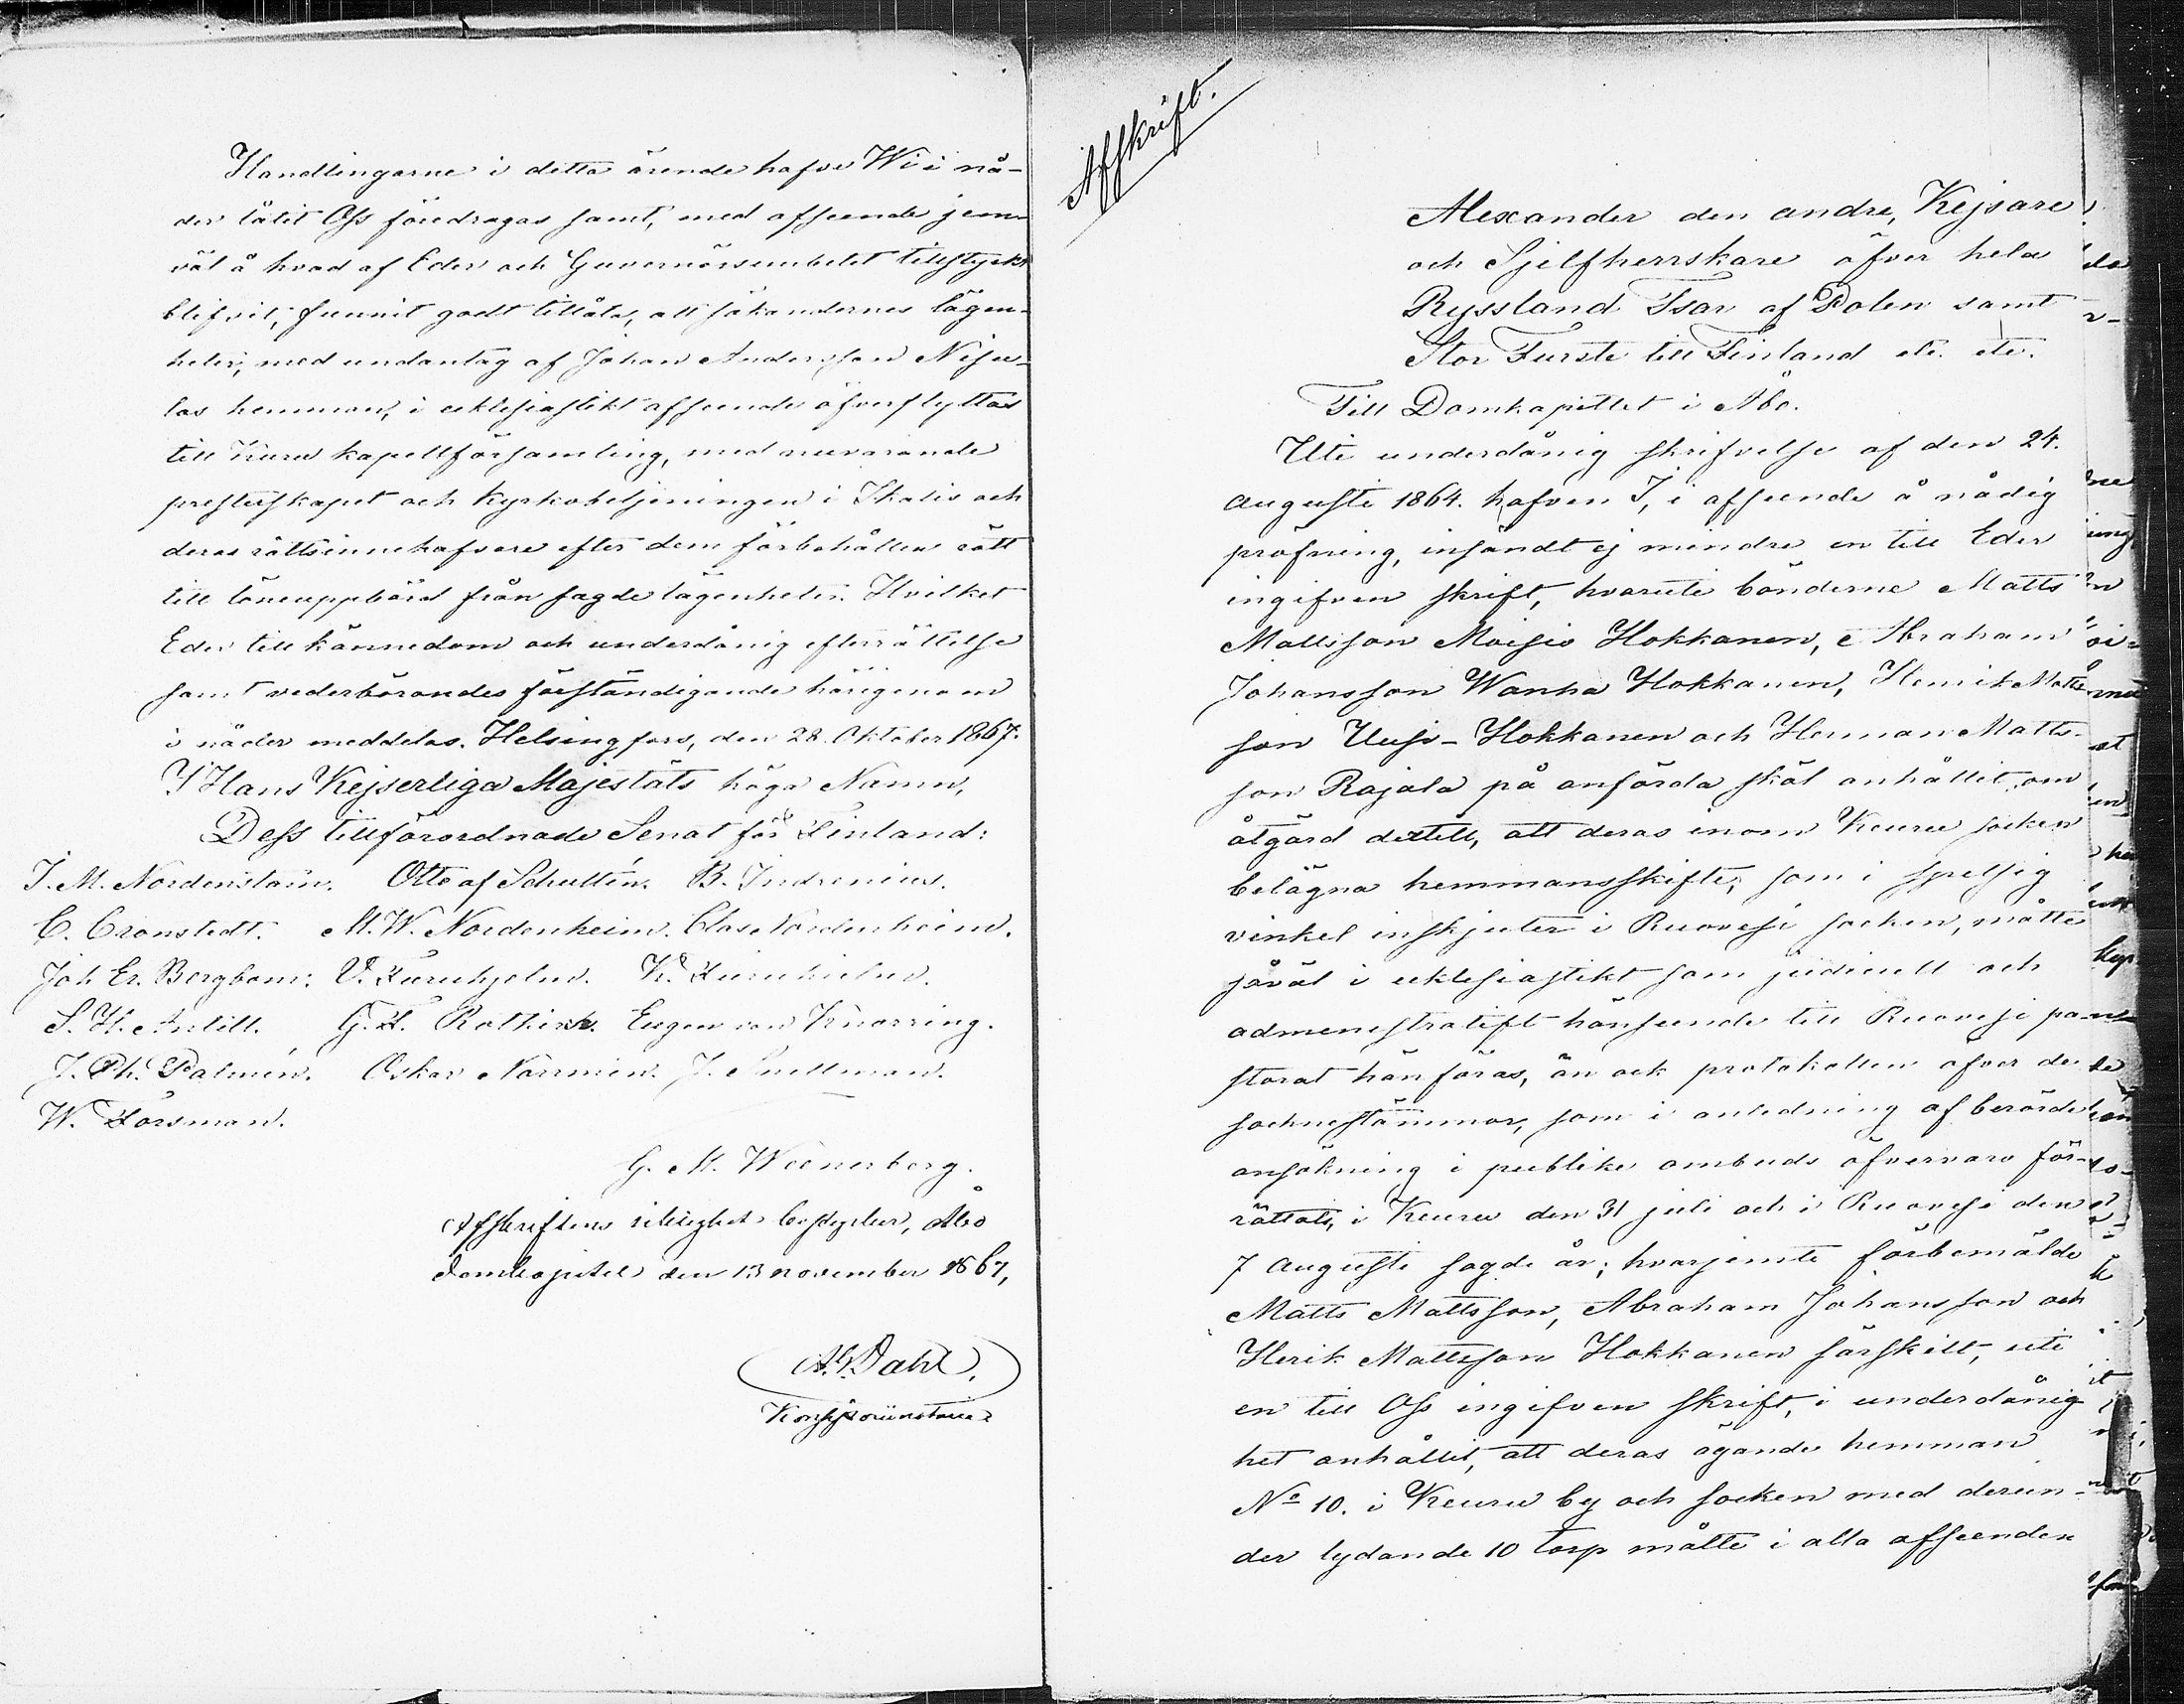 Handlingarne i detta ärende hafve Wi i nå-
der låtit Oss föredragas samt, med afseende jem-
väl å hvad af Eder och Guvernörsembetet tillstyrkt
blifvit, funnit godt tillåta, att sökandernes lägen-
heter, med undantag af Johan Andersson Nisu-
las hemman, i eklesiastikt afseende öfverflyttas
till Kuru kapellförsamling, med nuvarande
presterskapet och kyrkobetjeningen i Ikalis och
deras rättsinnehafvare efter dem förbehållen rätt
till löneuppbörd från sagde lägenheter. Hvilket
Eder till kännedom och underdånig efterrättelse
samt vederbörandes förständigande härigenom
i nåder meddelas. Helsingfors, den 28. Oktober 1867.
I Hans Kejserliga Majestäts höga Namn,
Dess tillförordnade Senat för Finland:
J. M. Nordenstam. Otto af Schultén. B. Indrenius.
C. Cronstedt. M. W. Nordenheim. Clas Nordenheim.
Joh Er. Bergbom: V. Furuhjelm. K. Furuhielm.
S. H. Antell. G. F. Rotkirch. Eugen von Knorring.
J. Ph. Palmén. Oskar Norrmén. J. Snellman.
W. Forsman.
G. M. Wænerberg.
Afskriftens riktighet bestyrker, Åbo
domkapitel den 13 november 1867,
A. G. Dahl.
Konsistoriinotarie
Afskrift.
Alexander den andre, Kejsare
och Sjelfherrskare öfver hela
Ryssland Tsar af Polen samt
Stor Furste till Finland etc. etc.
Till Domkapitlet i Åbo.
Uti underdånig skrifvelse af den 24.
Augusti 1864. hafven I, i afseende å nådig
pröfning, insändt ej mindre en till Eder
ingifven skrift, hvaruti bönderne Matts
Mattsson Moisio Hokkanen, Abraham
Johansson Wanha Hokkanen, Henrik Matts-
son Uusi-Hokkanen och Herman Matts-
son Rajala på anförda skäl anhållit om
åtgärd dertill, att deras inom Keuru socken
belägna hemmansskifte, som i spetsig
vinkel inskjuter i Ruovesi socken, måtte
såväl i eklesiastikt som judicielt och
admenistratift hänseende till Ruovesi pa-
storat hänföras, än ock protokollen öfver de
socknestämmor, som i anledning af berörde
ansökning i publike ombuds öfvervaro för-
rättats, i Keuru den 31 juli och i Ruovesi den
7 Augusti sagde år; hvarjemte förbemälde
Matts Mattsson, Abraham Johansson och
Herik Mattsson Hokkanen särskilt, uti
en till Oss ingifven skrift, i underdånig-
het anhållit, att deras ägande hemman
No 10. i Keuru by och socken med derun-
der lydande 10 torp måtte i alla afseenden